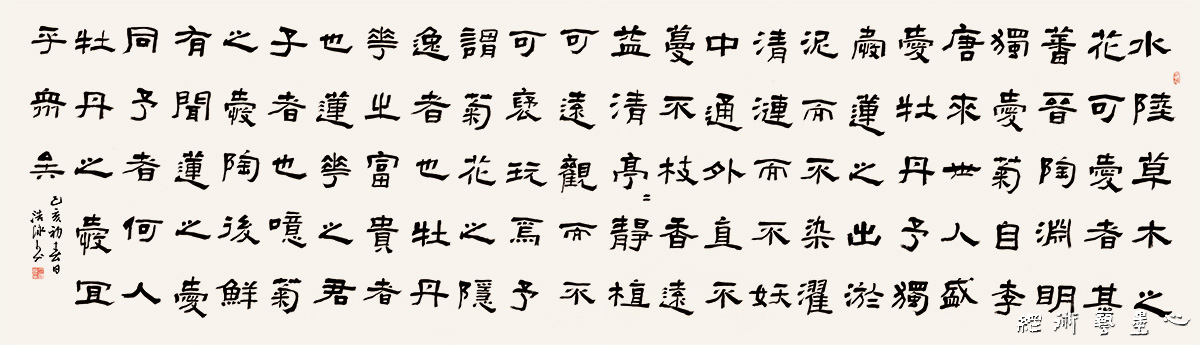 水陸草木之
花可愛者甚
蕃晉陶淵明
獨愛菊自李
唐來世人盛
愛牡丹予獨
愛蓮之出淤
泥而不染濯
清漣而不妖
中通外直不
蔓不枝香遠
益清亭=靜植
可遠觀而不
可褻玩焉予
謂菊花之隱
逸者也牡丹
華之富貴者
也蓮華之君
子者也噫菊
之愛陶後鮮
有聞蓮之愛
同予者何人
牡丹之愛宜
乎眾矣
己亥初春日